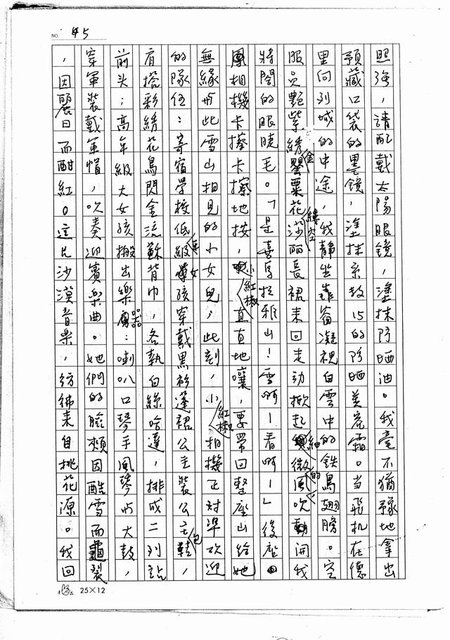 NO. 45
照強，請配戴太陽眼鏡，塗抹防晒油。我毫不猶豫地拿出
預藏口袋的墨鏡，塗抹系数15的防晒美庭霜。当飛机在德
里向列城的中途，我靜坐靠窗凝視白雲中的鉄鳥翅膀。空
服員艷紫綉金罌粟花縷空莎丽長裙来回走动掀起細微的風吹開我
将閤的眼睫毛。「是喜馬拉雅山！雪啊！看啊！」後座
團相機卡擦卡擦地按，小紅椒直直地嚷，要帶回整座山給她
無緣与此雪山相見的小女兒，此刻，小紅椒相機正对準欢迎
的隊伍：寄宿学校低級女孩穿戴黑衫蓬裙公主裝公主鞋，
肩搭彩綉花鳥閃金流蘇背巾，各執白絲哈達，排成二列站
前头；高年級大女孩搬出樂器：喇叭口琴手風琴与大鼓，
穿軍裝戴軍帽，吹奏迎賓樂曲。她們的臉頰因酷雪而龜裂
，因麗日而酣紅。這片沙漠音樂，彷彿来自桃花源。我回
25×12